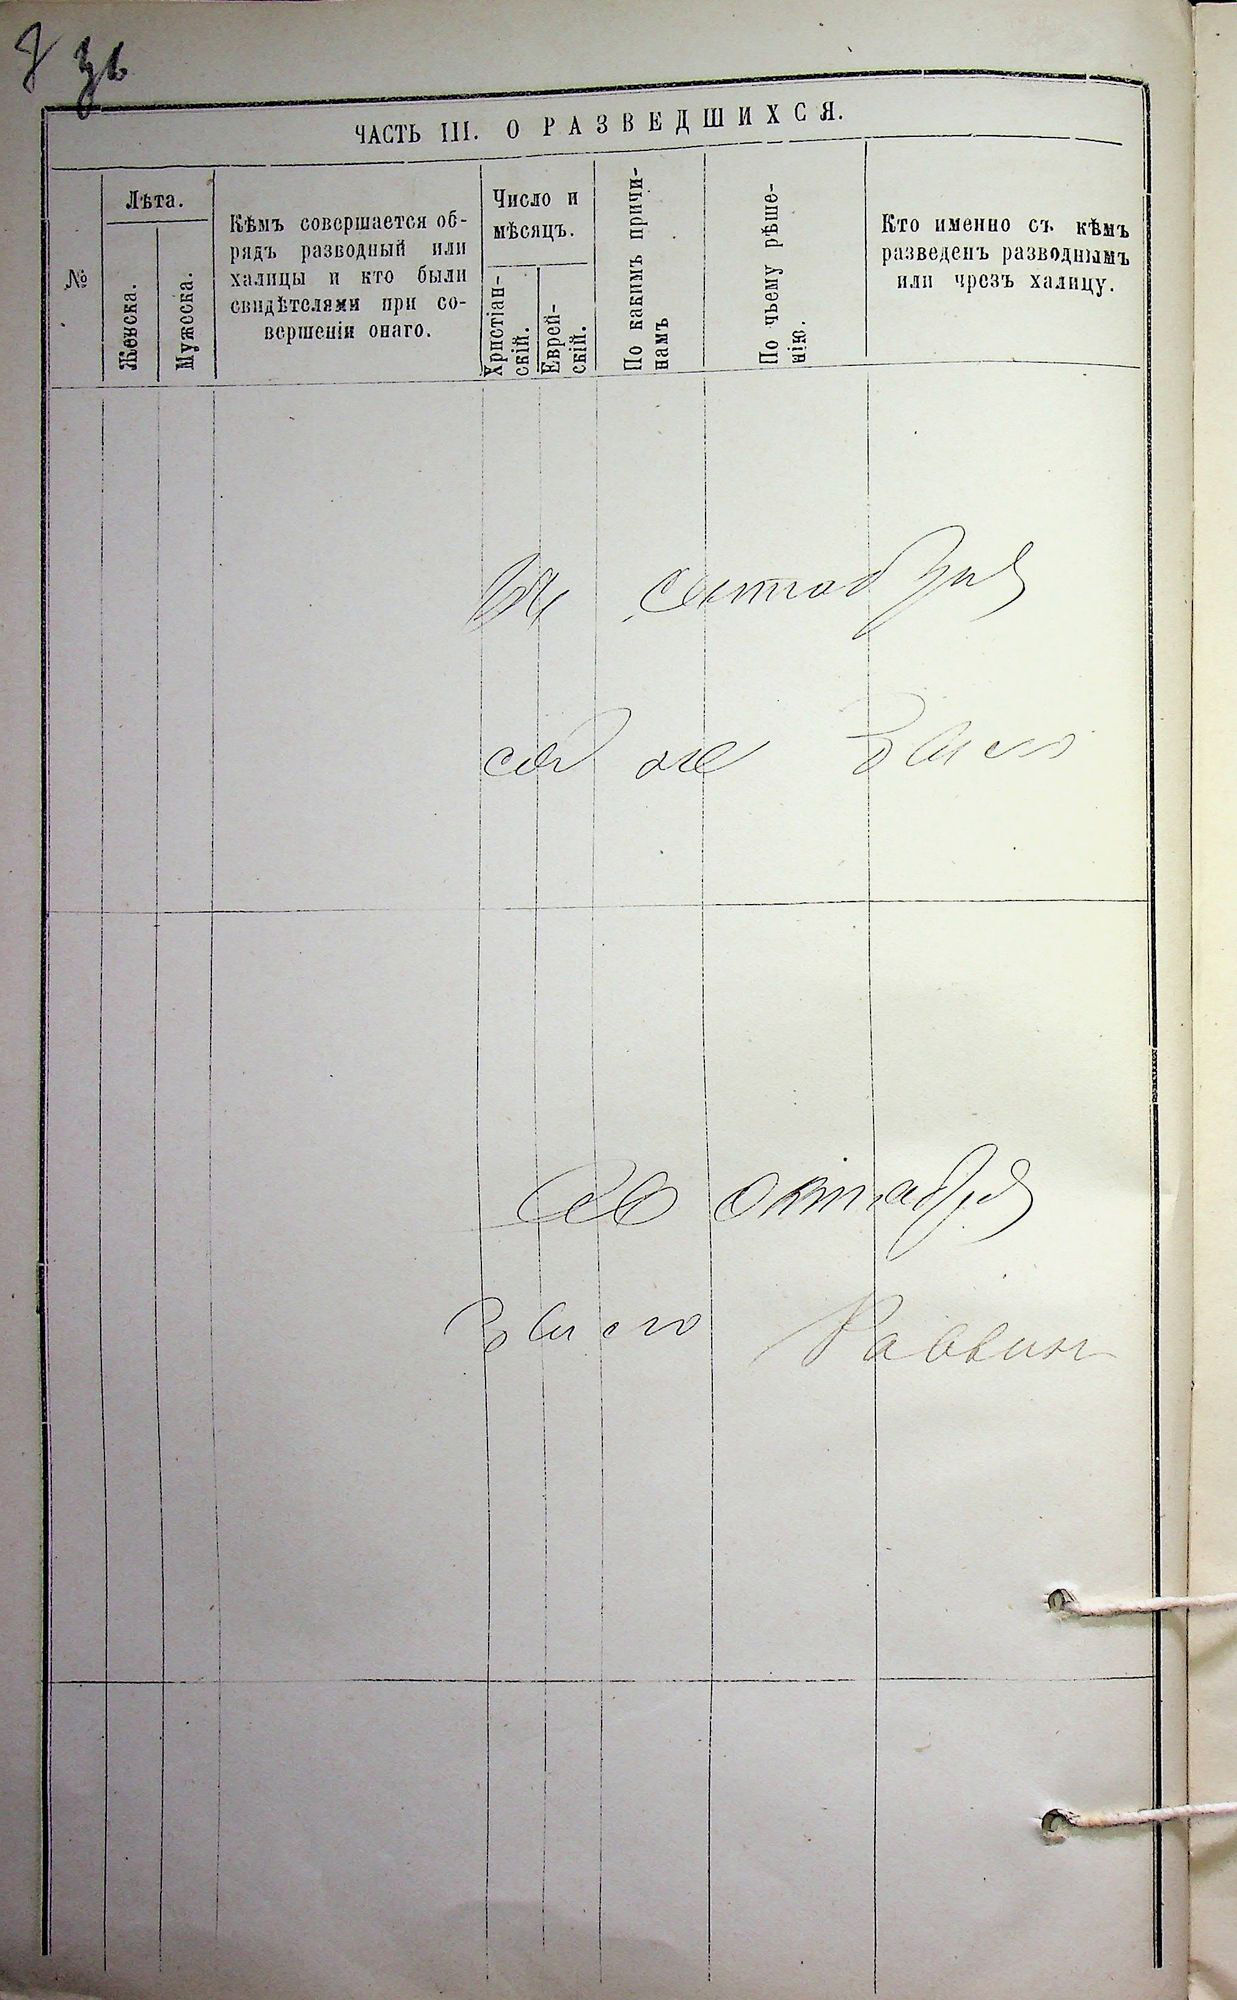 ЧАСТЬ III. О РАЗВЕДШИХСЯ.
№
Лѣта.
Женска.
Мужеска.
Кѣмъ совершается об-
рядъ разводный или
халицы и кто были
свидѣтелями при со-
вершеніи онаго.
Число и
мѣсяцъ.
Христіан-
скій.
Еврей-
скій.
По какимъ причи-
намъ
По чьему рѣше-
нію.
Кто именно съ кѣмъ
разведенъ разводнымъ
или чрезъ халицу.
сентября
октября
Раввин